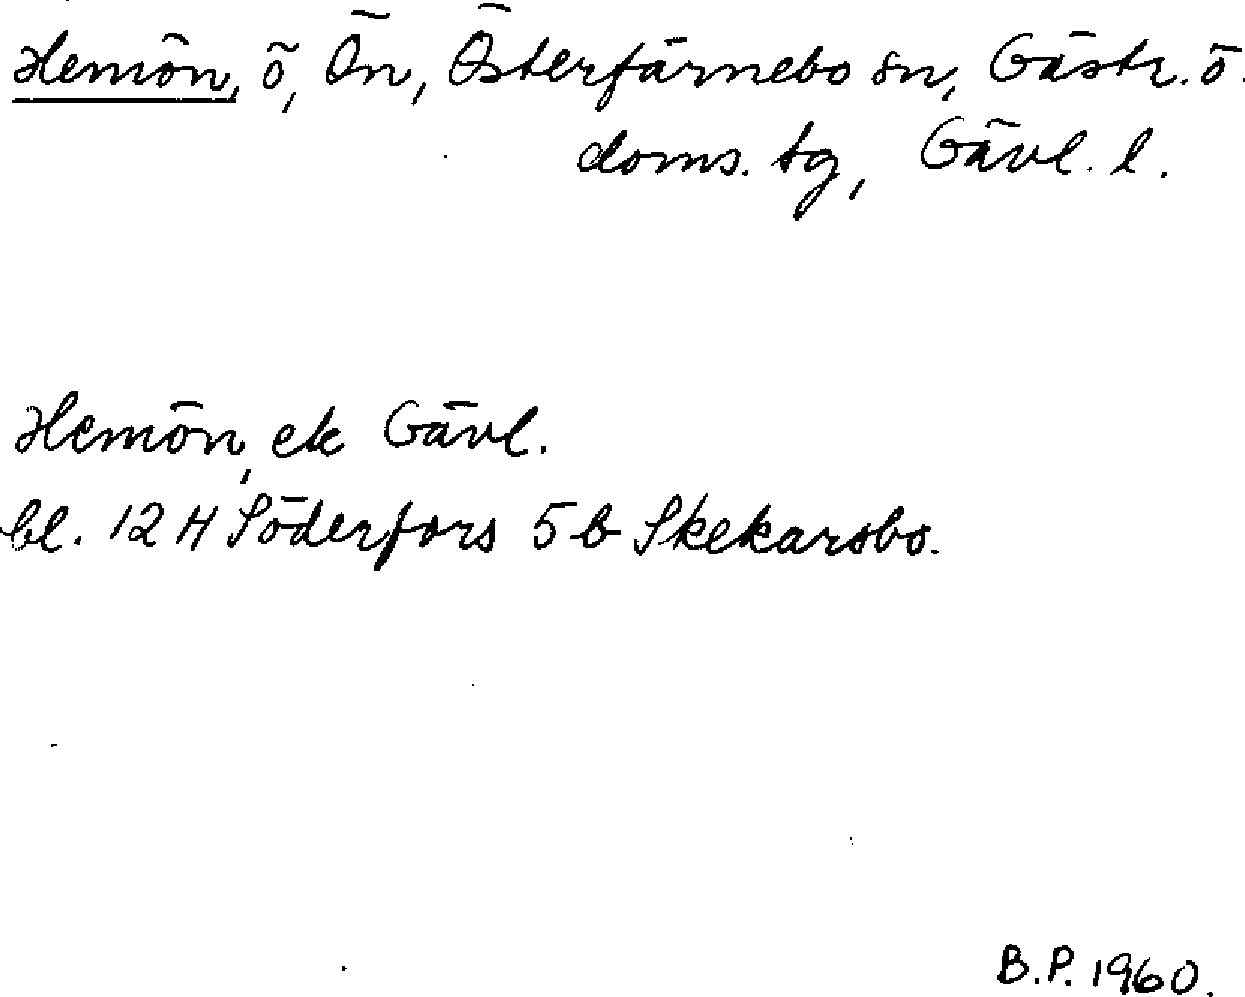 Hemön, ö, Ön, Österfärnebo sn, Gästr. ö.
doms. tg, Gävl. l.
Hemön, ek Gävl.
bl. 12 H Söderfors 5 b Skekarsbo.
B.P. 1960.